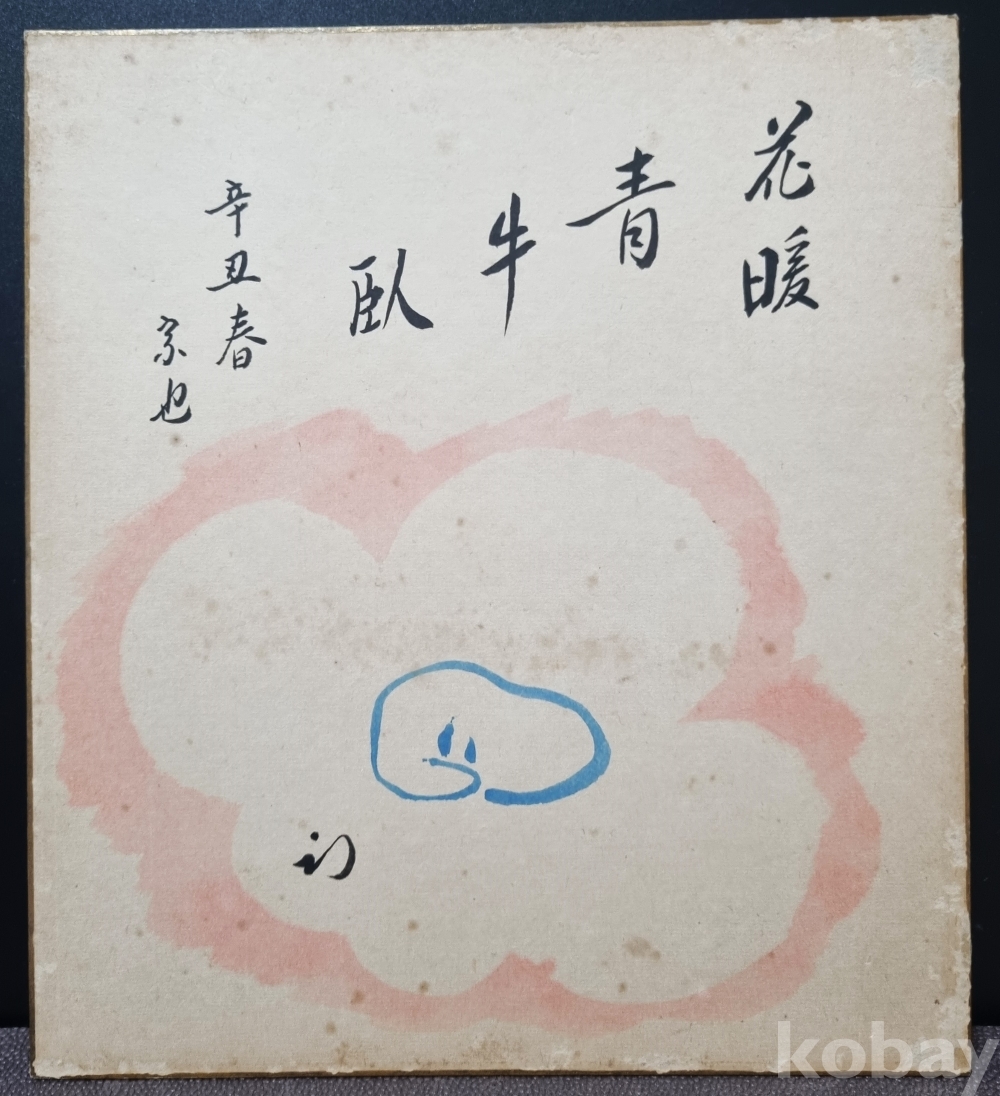 花暖
青
牛
臥
辛丑春
宗也
kobay